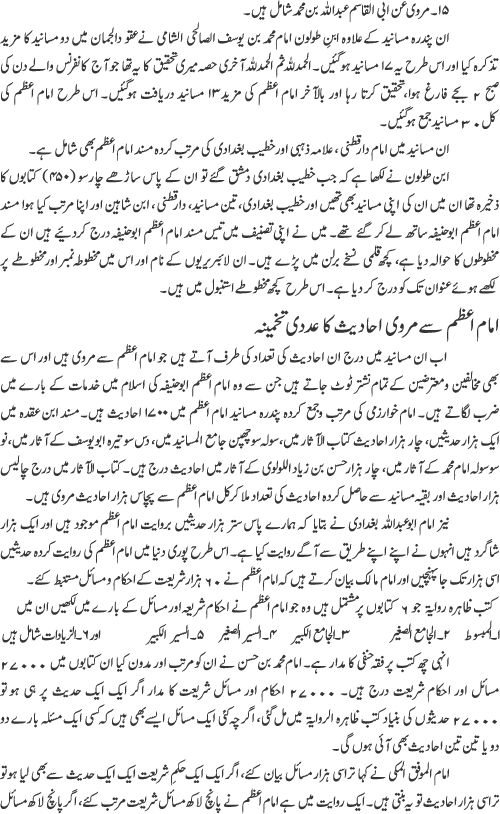 ۱۵۔ مروی عن ابی القاسم عبداللہ بن محمد شامل ہیں۔
ان پندرہ مسانید کے علاوہ ابن طولون امام محمد بن یوسف الصالحی الشامی نے عقود الجمان میں دو مسانید کا مزید
تذکرہ کیا اور اس طرح یہ ۱۷ مسانید ہوگئیں۔ الحمدللہ ثم الحمدللہ آخری حصہ میری تحقیق کا یہ تھا جو آج کانفرنس والے دن کی
صبح ۲ بجے فارغ ہوا، تحقیق کرتا رہا اور بالآخر امام اعظم کی مزید ۱۳ مسانید دریافت ہوگئیں۔ اس طرح امام اعظم کی
کل ۳۰ مسانید جمع ہوگئیں۔
ان مسانید میں امام دار قطنی، علامہ ذہبی اور خطیب بغدادی کی مرتب کردہ مسند امام اعظم بھی شامل ہے۔
ابن طولون نے لکھا ہے کہ جب خطیب بغدادی دمشق گئے تو ان کے پاس ساڑھے چار سو (۴۵۰) کتابوں کا
ذخیرہ تھا ان میں ان کی اپنی مسانید بھی تھیں اور خطیب بغدادی، تین مسانید، دار قطنی، ابن شاہین اور اپنا مرتب کیا ہوا مسند
امام اعظم ابوحنیفہ ساتھ لے کر گئے تھے۔ میں نے اپنی تصنیف میں تیس مسند امام اعظم ابوحنیفہ درج کردیئے ہیں ان کے
مخطوطوں کا حوالہ دیا ہے، کچھ قلمی نسخے برلن میں پڑے ہیں۔ ان لائبریریوں کے نام اور اس میں مخطوطہ نمبر اور مخطوطے پر
لکھے ہوئے عنوان تک کو درج کر دیا ہے۔ اس طرح کچھ مخطوطے استنبول میں ہیں۔
امام اعظم سے مروی احادیث کا عددی تخمینہ
اب ان مسانید میں درج ان احادیث کی تعداد کی طرف آتے ہیں جو امام اعظم سے مروی ہیں اور اس سے
بھی مخالفین و معترضین کے تمام نشتر ٹوٹ جاتے ہیں جن سے وہ امام اعظم ابوحنیفہ کی اسلام میں خدمات کے بارے میں
ضرب لگاتے ہیں۔ امام خوارزمی کی مرتب و جمع کردہ پندرہ مسانید امام اعظم میں ۱۷۰۰ احادیث ہیں۔ مسند ابن عقدہ میں
ایک ہزار حدیثیں، چار ہزار احادیث کتاب الآثار میں، سولہ سو چھپن جامع المسانید میں، دس سو تیرہ ابو یوسف کے آثار میں، نو
سو سولہ امام محمد کے آثار میں، چار ہزار حسن بن زیاد اللولوی کے آثار میں احادیث درج ہیں۔ کتاب الآثار میں درج چالیس
ہزار احادیث اور بقیہ مسانید سے حاصل کردہ احادیث کی تعداد ملا کر کل امام اعظم سے پچاس ہزار احادیث مروی ہیں۔
نیز امام ابو عبداللہ بغدادی نے بتایا کہ ہمارے پاس ستر ہزار حدیثیں بروایت امام اعظم موجود ہیں اور ایک ہزار
شاگرد ہیں انہوں نے اپنے اپنے طریق سے آگے روایت کیا ہے۔ اس طرح پوری دنیا میں امام اعظم کی روایت کردہ حدیثیں
اسی ہزار تک جا پہنچیں اور امام مالک بیان کرتے ہیں کہ امام اعظم نے ۶۰ ہزار شریعت کے احکام و مسائل مستنبط کئے۔
کتب ظاہرہ روایۃ جو ۶ کتابوں پر مشتمل ہیں وہ جو امام اعظم نے احکام شریعہ اور مسائل کے بارے میں لکھیں ان میں
۱۔المبسوط ۲۔الجامع الصغیر ۳۔الجامع الکبیر ۴۔السیر الصغیر ۵۔السیر الکبیر اور ۶۔الزیادات شامل ہیں
انہی چھ کتب پر فقہ حنفی کا مدار ہے۔ امام محمد بن حسن نے ان کو مرتب اور مدون کیا ان کتابوں میں ۲۷۰۰۰
مسائل اور احکام شریعت درج ہیں۔ ۲۷۰۰۰ احکام اور مسائل شریعت کا مدار اگر ایک ایک حدیث پر ہی ہو تو
۲۷۰۰۰ حدیثوں کی بنیاد کتب ظاہرہ الروایۃ میں مل گئی، اگرچہ کئی ایک مسائل ایسے بھی ہیں کہ کسی ایک مسئلہ بارے دو
دو یا تین تین احادیث بھی آئی ہوں گی۔
امام الموفق المکی نے کہا تراسی ہزار مسائل بیان کئے، اگر ایک ایک حکم شریعت ایک ایک حدیث سے بھی لیا ہو تو
تراسی ہزار احادیث تو یہ بنتی ہیں۔ ایک روایت میں ہے امام اعظم نے پانچ لاکھ مسائل شریعت مرتب کئے، اگر پانچ لاکھ مسائل